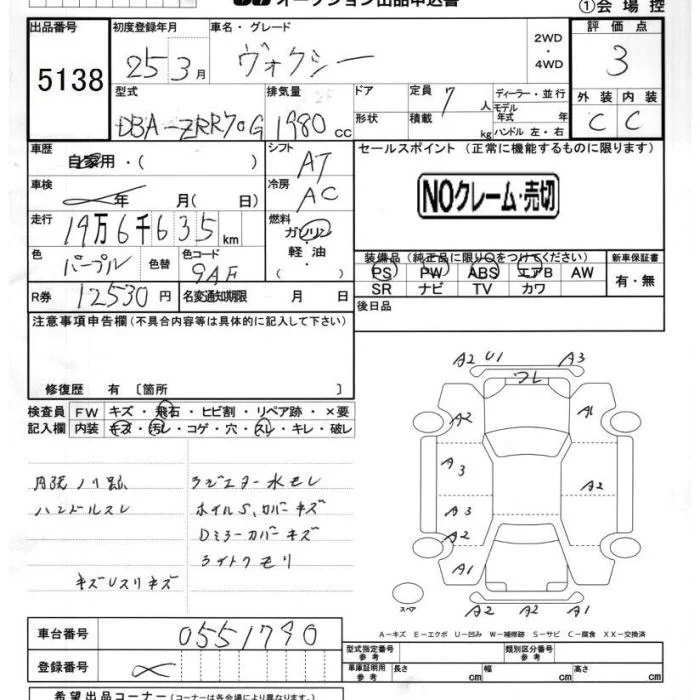 オークション出品申込書
①会場控
出品番号 5138
初度登録年月 25 3月
車名・グレード ヴォクシー
2WD・4WD
評価点 3
型式 DBA-ZRR70G
排気量 1980 cc
ドア
定員 7人
ディーラー・並行
モデル年式 年
形状
積載 kg
ハンドル 左・右
外装 C
内装 C
車歴 自家用・( )
シフト AT
セールスポイント (正常に機能するものに限ります)
NOクレーム・売切
車検 年 月( 日)
冷房 AC
走行 19万6千635km
燃料 ガソリン・軽油・
色 パープル
色替
色コード 9AF
装備品 (純正品に限り○をつけてください)
PS PW ABS エアB AW
SR ナビ TV カワ
新車保証書 有・無
R券 12530円
名変通知期限 月 日
後日品
注意事項申告欄(不具合内容等は具体的に記入して下さい)
修復歴 有 〔箇所 〕
検査員記入欄
FW キズ・飛石・ヒビ割・リペア跡・×要
内装 キズ・汚レ・コゲ・穴・スレ・キレ・破レ
ハンドルスレ
ラジエター水モレ
ホイルS,カバーキズ
Dミラーカバーキズ
ライトクモリ
キズUスリキズ
A2 U1 A3
フレ
A2 A1
A3
A2
A3
A2
A1 A1
A2 A2
スペア
A-キズ E-エクボ U-凹み W-補修跡 S-サビ C-腐食 XX-交換済
車台番号 0551790
登録番号
型式指定番号 参考
類別区分番号 参考
車庫証明用 参考 長さ cm 幅 cm 高さ cm
希望出品コーナー(コーナーは各会場により異なります。)